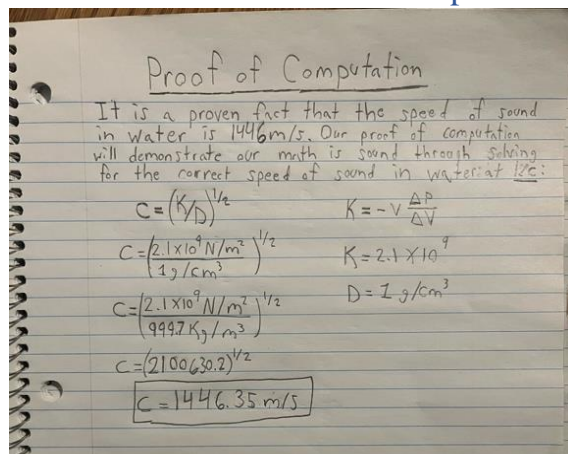 Proof of Computation
It is a proven fact that the speed of sound
in water is 1446m/s. Our proof of computation
will demonstrate our math is sound through solving
for the correct speed of sound in water: at 12°C:
C = (K/D)^1/2
K = -V ΔP/ΔV
C = (2.1x10^9 N/m² / 1g/cm³)^1/2
K = 2.1 X 10^9
C = (2.1x10^9 N/m² / 999.7 Kg/m³)^1/2
D = 1 g/cm³
C = (2100630.2)^1/2
C = 1446.35 m/s